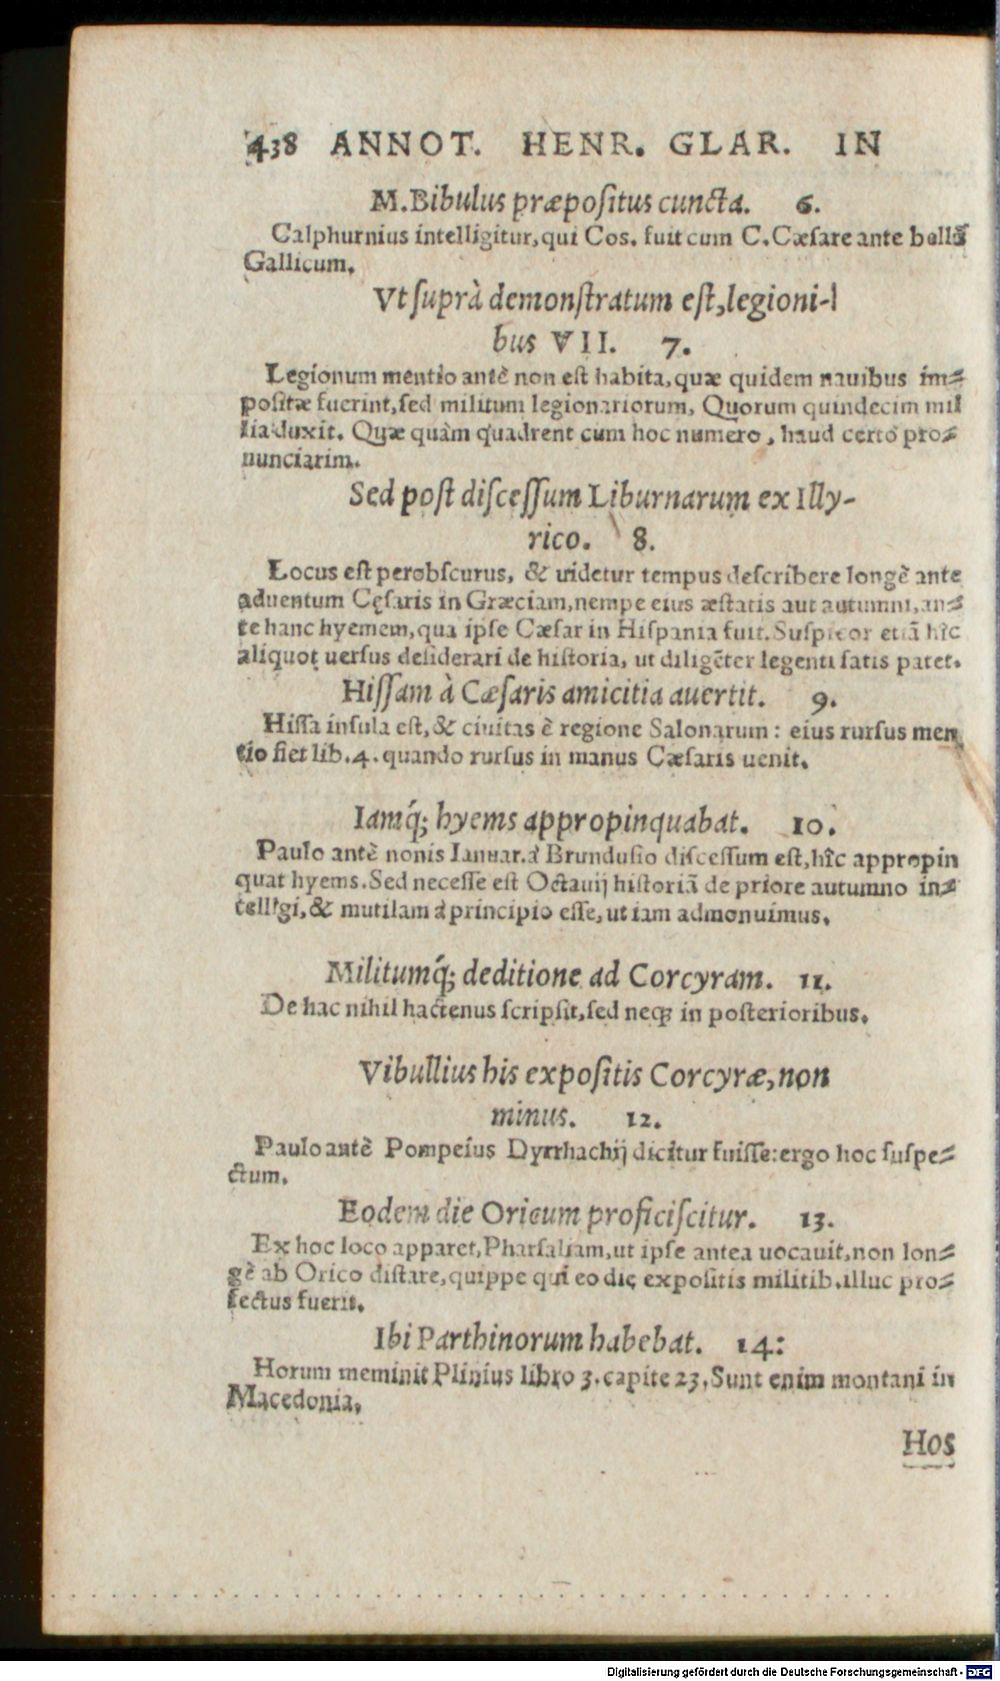 438 ANNOT. HENR. GLAR. IN
M. Bibulus præpositus cuncta. 6.
Calphurnius intelligitur, qui Cos. fuit cum C. Cæsare ante bellū
Gallicum.
Vt suprà demonstratum est, legioni-
bus VII. 7.
Legionum mentio antè non est habita, quæ quidem nauibus im-
positæ fuerint, sed militum legionariorum, Quorum quindecim mil
lia duxit. Quæ quàm quadrent cum hoc numero, haud certò pro-
nunciarim.
Sed post discessum Liburnarum ex Illy-
rico. 8.
Locus est perobscurus, & uidetur tempus describere longè ante
aduentum Cęsaris in Græciam, nempe eius æstatis aut autumni, an-
te hanc hyemem, qua ipse Cæsar in Hispania fuit. Suspicor etiā hîc
aliquot uersus desiderari de historia, ut diligēter legenti satis patet.
Hissam à Cæsaris amicitia auertit. 9.
Hissa insula est, & ciuitas è regione Salonarum: eius rursus men
tio fiet lib. 4. quando rursus in manus Cæsaris uenit.
Iamq́; hyems appropinquabat. 10.
Paulo antè nonis Ianuar. à Brundusio discessum est, hîc appropin
quat hyems. Sed necesse est Octauij historiā de priore autumno in-
telligi, & mutilam à principio esse, ut iam admonuimus.
Militumq́; deditione ad Corcyram. 11.
De hac nihil hactenus scripsit, sed neq; in posterioribus.
Vibullius his expositis Corcyræ, non
minus. 12.
Paulo antè Pompeius Dyrrhachij dicitur fuisse: ergo hoc suspe-
ctum.
Eodem die Oricum proficiscitur. 13.
Ex hoc loco apparet, Pharsaliam, ut ipse antea uocauit, non lon-
gè ab Orico distare, quippe qui eo die expositis militib. illuc pro-
fectus fuerit.
Ibi Parthinorum habebat. 14:
Horum meminit Plinius libro 3. capite 23. Sunt enim montani in
Macedonia.
Hos
Digitalisierung gefördert durch die Deutsche Forschungsgemeinschaft - DFG